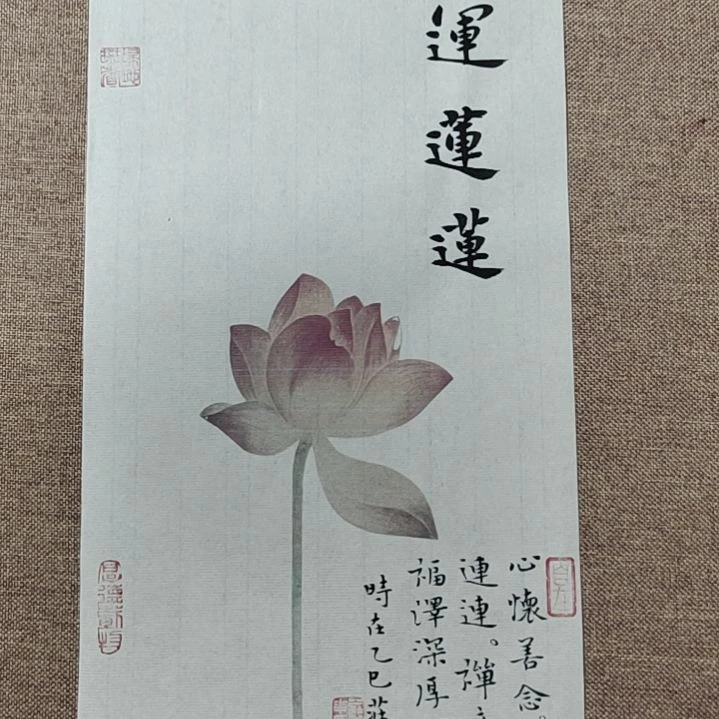 運蓮蓮
心懷善念
連連。禪
福澤深厚
時在乙巳